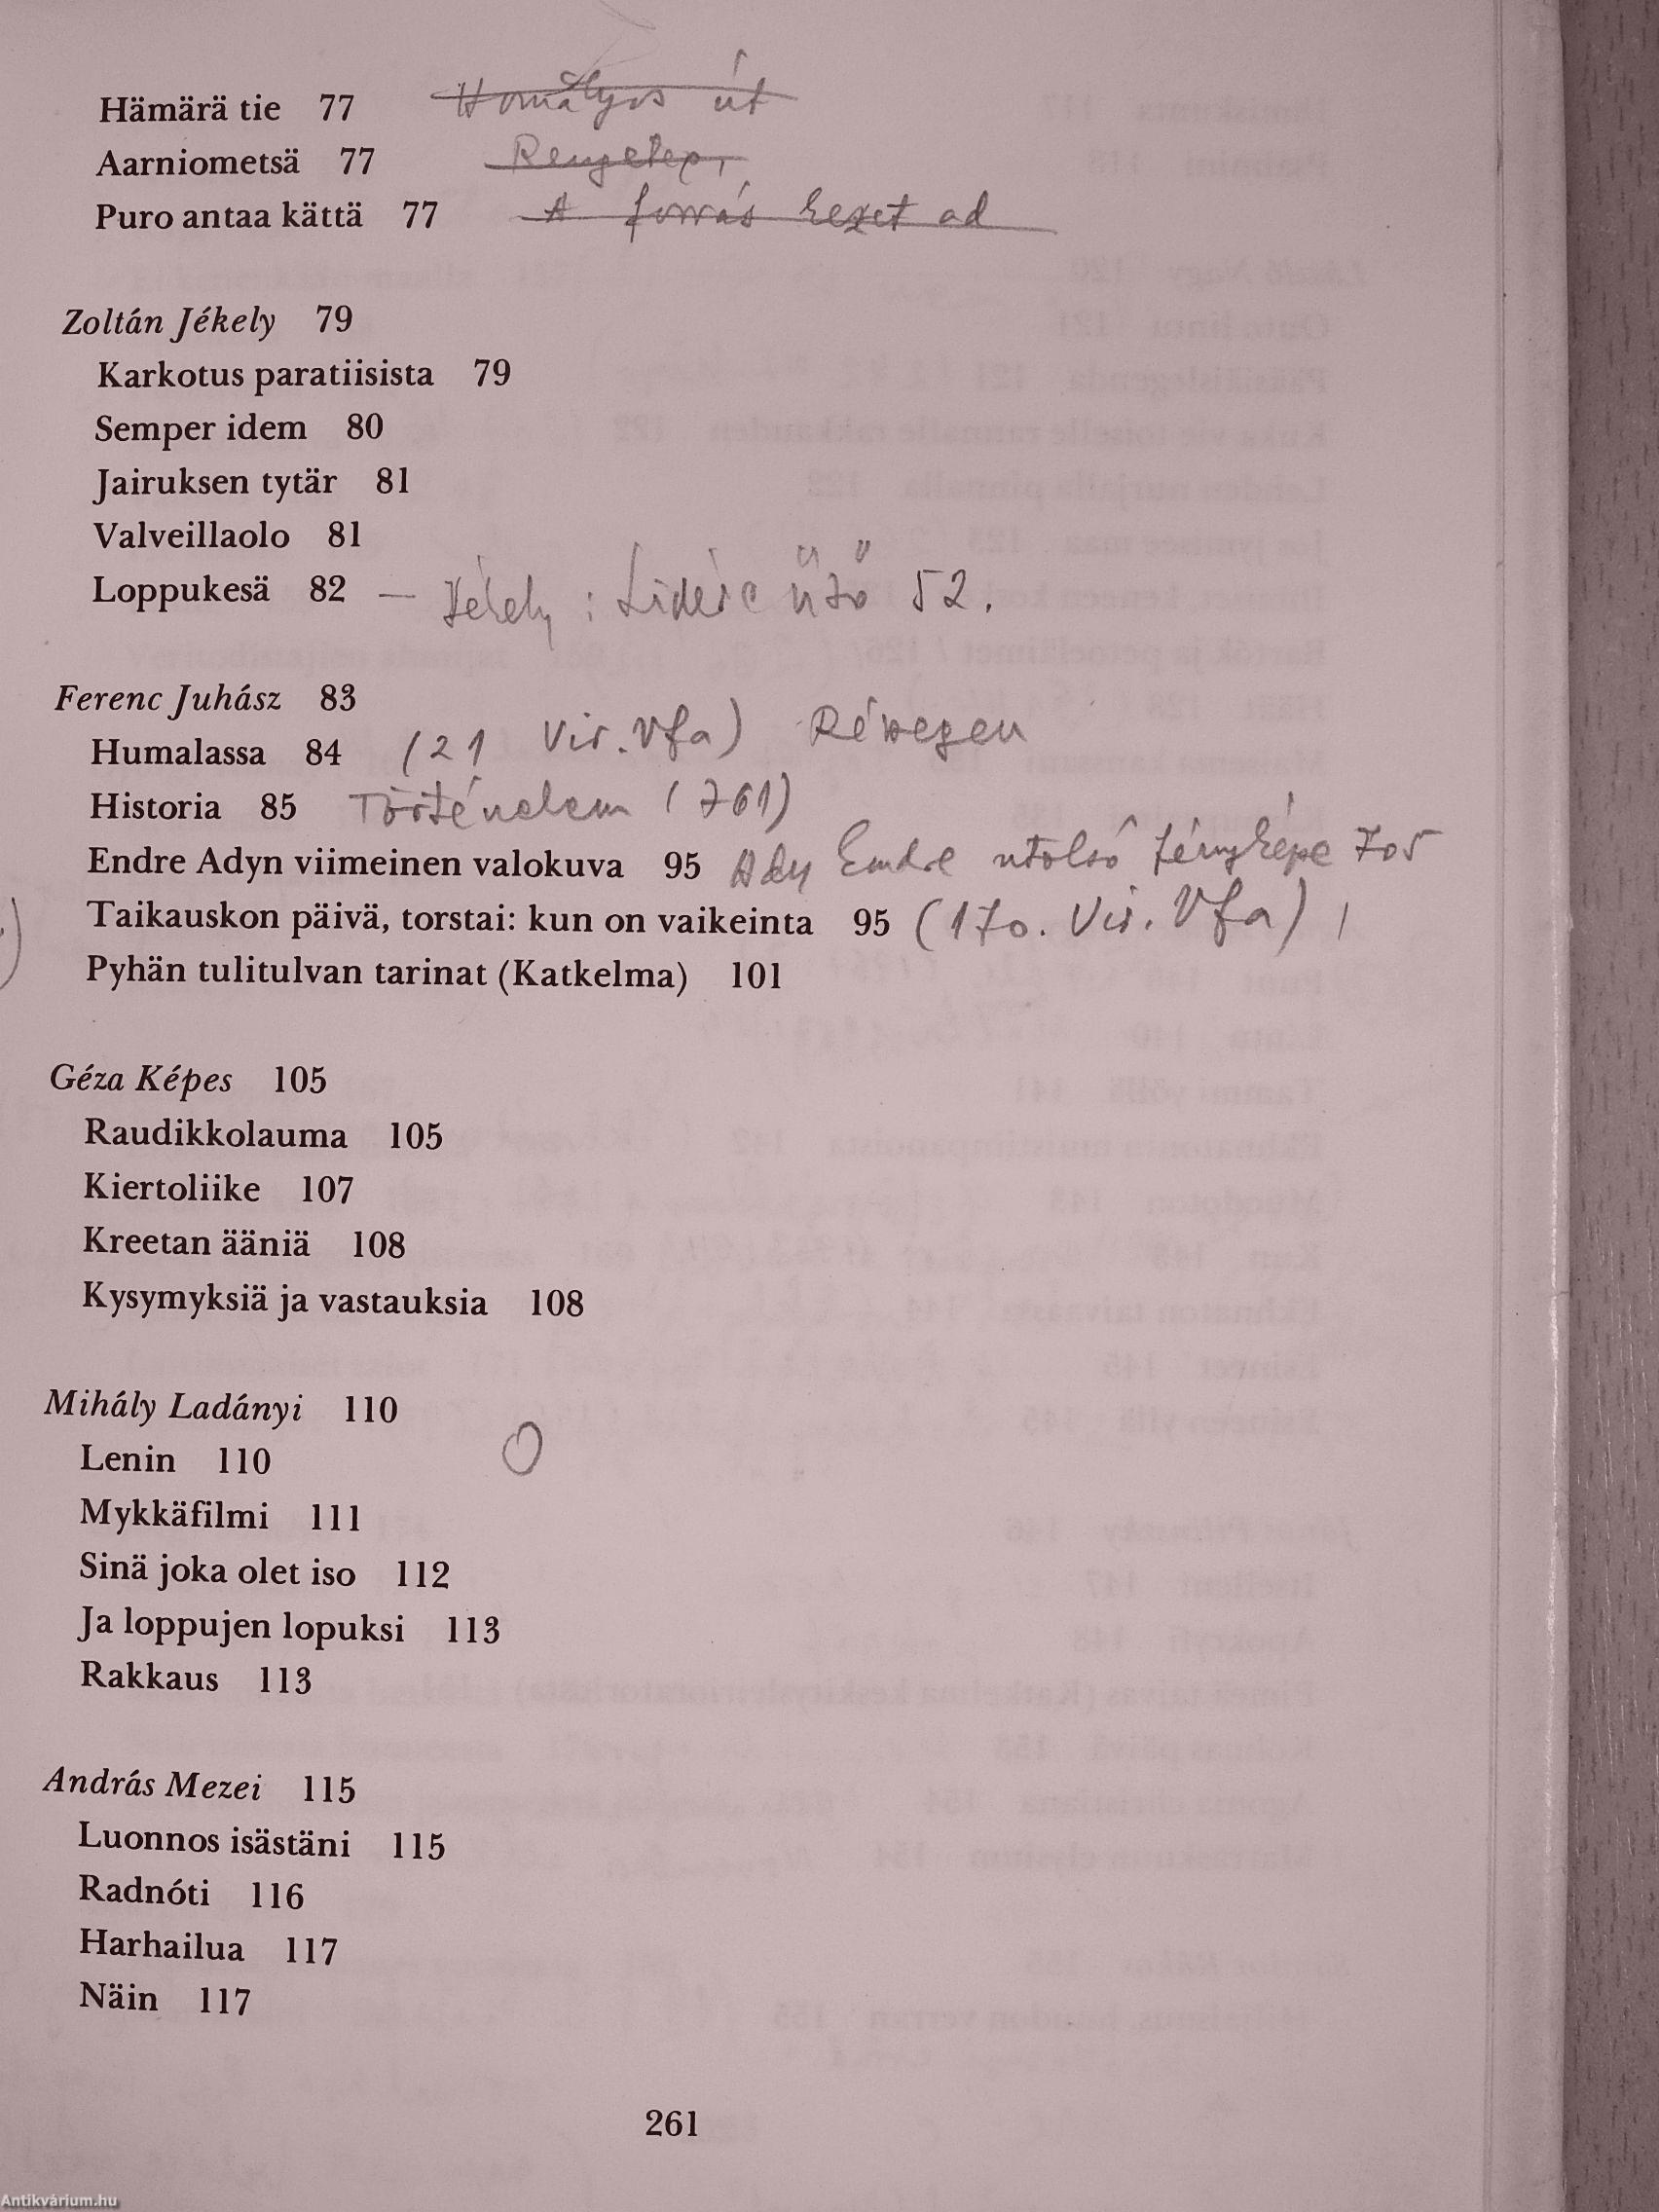 Hämärä tie 77 Homályos út
Aarniometsä 77 Rengeteg,
Puro antaa kättä 77 A forrás kezet ad
Zoltán Jékely 79
Karkotus paratiisista 79
Semper idem 80
Jairuksen tytär 81
Valveillaolo 81
Loppukesä 82 — Jékely : Lidérc űző 52.
Ferenc Juhász 83
Humalassa 84 (21 Vir. Vfa) Részegen
Historia 85 Történelem (761)
Endre Adyn viimeinen valokuva 95 Ady Endre utolsó fényképe 705
Taikauskon päivä, torstai: kun on vaikeinta 95 (170. Vir. Vfa)
Pyhän tulitulvan tarinat (Katkelma) 101
Géza Képes 105
Raudikkolauma 105
Kiertoliike 107
Kreetan ääniä 108
Kysymyksiä ja vastauksia 108
Mihály Ladányi 110
Lenin 110
Mykkäfilmi 111
Sinä joka olet iso 112
Ja loppujen lopuksi 113
Rakkaus 113
András Mezei 115
Luonnos isästäni 115
Radnóti 116
Harhailua 117
Näin 117
261
Antikvárium.hu